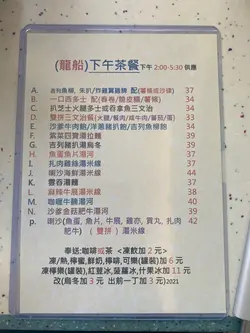 (龍船)下午茶餐 下午 2:00-5:30 供應
A. 吉列魚柳, 朱扒/炸雞翼雞脾 配(薯條或沙律) 37
B. 一口西多士 配(春卷/脆皮腸/薯條) 34
C. 扒芝士火腿多士或吞拿魚三文治 34
D. 雙拼三文治餐(火腿/餐肉/咸牛肉/蕃茄/蛋) 33
E. 沙爹牛肉飽/洋蔥豬扒飽/吉列魚柳飽 34
F. 紫菜四寶湯拉麵 39
G. 吉列豬扒湯烏冬 39
H. 魚蛋魚片湯河 37
I. 扎肉雞絲湯米線 37
J. 喇沙海鮮湯米線 44
K. 雲吞湯麵 37
L. 麻辣牛腩湯米線 39
M. 咖喱牛腩湯河 40
N. 沙爹金菇肥牛湯河 40
p. 喇沙(魚蛋, 魚片, 牛腩, 雞亦, 貢丸, 扎肉 42
(雙拼)湯米線
奉送:咖啡或茶 <凍飲加 2 元>
凍/熱,檸蜜,鮮奶,檸啡,可樂(罐裝)加 6 元
凍檸樂(罐裝),紅荳冰,菠蘿冰,什果冰加 11 元
改(烏冬加 3 元 出前一丁加 3 元)2021